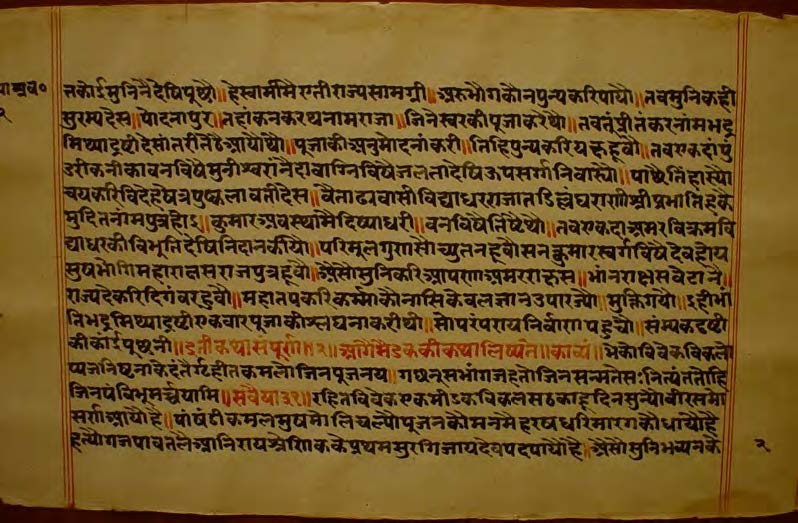 नकोई मुनिनै देषिपूछ्यौ॥हे स्वामी मै एती राज्यसामग्री॥अरु भोग कौन पुन्य करि पायौ॥तव मुनि कही
सुरम्यदेस॥पोदनापुर॥तहां कनकरथ नाम राजा॥जिनेस्वर की पूजा करे थौ॥तव तूं प्रीतंकर नाम भद्र
मिथ्यादृष्टी देसांतरी तैठे आयौ थौ॥पूजा की अनुमोदनां करी॥तिहि पुन्य करि यक्ष हूवो॥तव एकदा पुं
डरीकनी का वन विषै मुनीश्वरां नै दावाग्नि विषै जलता देषि उपसर्ग निवार्यौ॥पाछै तिहास्यौ
चय करि विदेह षेत्र पुष्कलावती देस॥वैताढ्यवासी विद्याधर राजा तडिल्लंघ राणी श्रीप्रभा तिहकै
मुदित नाम पुत्र होइ॥कुमार अवस्था मै दिष्या धरी॥वन विषै तिष्टै थौ॥तव एकदा अमरविक्रम वि
द्याधर की विभूति देषि निदान कीयो॥परि मूलगुणसौ च्युत न हूवौ सनत्कुमार स्वर्ग विषै देव होय
सुष भोगि महाराक्षस राजपुत्र हूवौ॥औसौ सुनि करि आपणा अमरराक्षस॥भांनराक्षस वेटा नै॥
राज्य दे करि दिगंवर हूवो॥महा तप करि कर्मा कौ नासि केवलज्ञान उपारज्यो॥मुक्ति गयौ॥इही भां
ति भद्र मिथ्यादृष्टी एक वार पूजा की श्लाघना करी थी॥सो परंपराय निर्वाण पहुचो॥संम्यकदृष्टी
की काई पूछनी॥इती कथा संपूर्ण॥आगै मैडक की कथा लिष्यते॥काव्यं॥भेको विवेकविकलो
प्यजनिष्ट नाके दंतैर्गृहीतकमलो जिनपूजनाय॥गछन् सभां गजहतो जिनसन्मतेः स नित्यं ततो हि
जिनपं विभुमर्चयामि॥सवैया ३१॥रहित विवेक एक मीडक विकल सठ काहू दिन सुन्यो वीर समो
सर्ण आयौ है॥पांषडी कमल मुष मो लि चल्यो पूजन कौ मन मै हरष धरि मारग कौ धायौ है
हत्यौ गज पाव तलै आनि राय श्रेणिक कै प्रथम सुरगि जाय देव पद पायौ है॥औसौ सुनि भव्य नकै
२